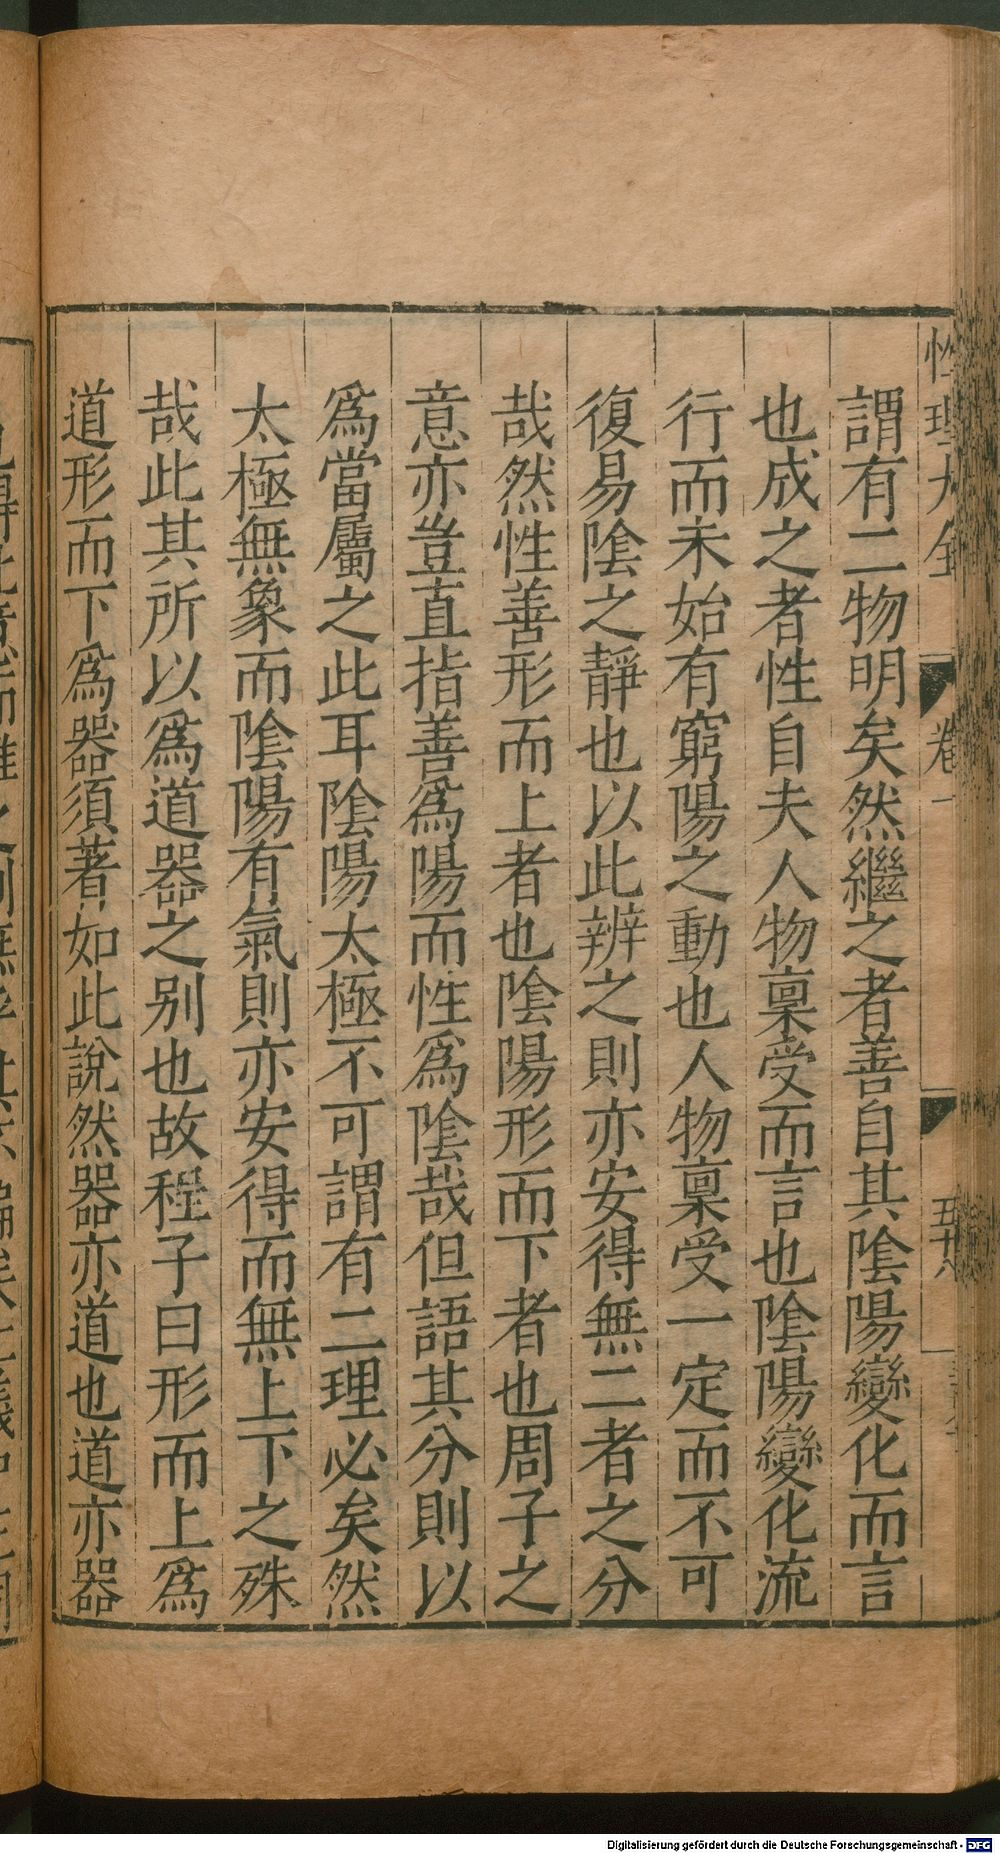 性理大全 卷一
謂有二物明矣然繼之者善自其陰陽變化而言
也成之者性自夫人物稟受而言也陰陽變化流
行而未始有窮陽之動也人物稟受一定而不可
復易陰之靜也以此辨之則亦安得無二者之分
哉然性善形而上者也陰陽形而下者也周子之
意亦豈直指善爲陽而性爲陰哉但語其分則以
爲當屬之此耳陰陽太極不可謂有二理必矣然
太極無象而陰陽有氣則亦安得而無上下之殊
哉此其所以爲道器之别也故程子曰形而上爲
道形而下爲器須著如此說然器亦道也道亦器
Digitalisierung gefördert durch die Deutsche Forschungsgemeinschaft - DFG